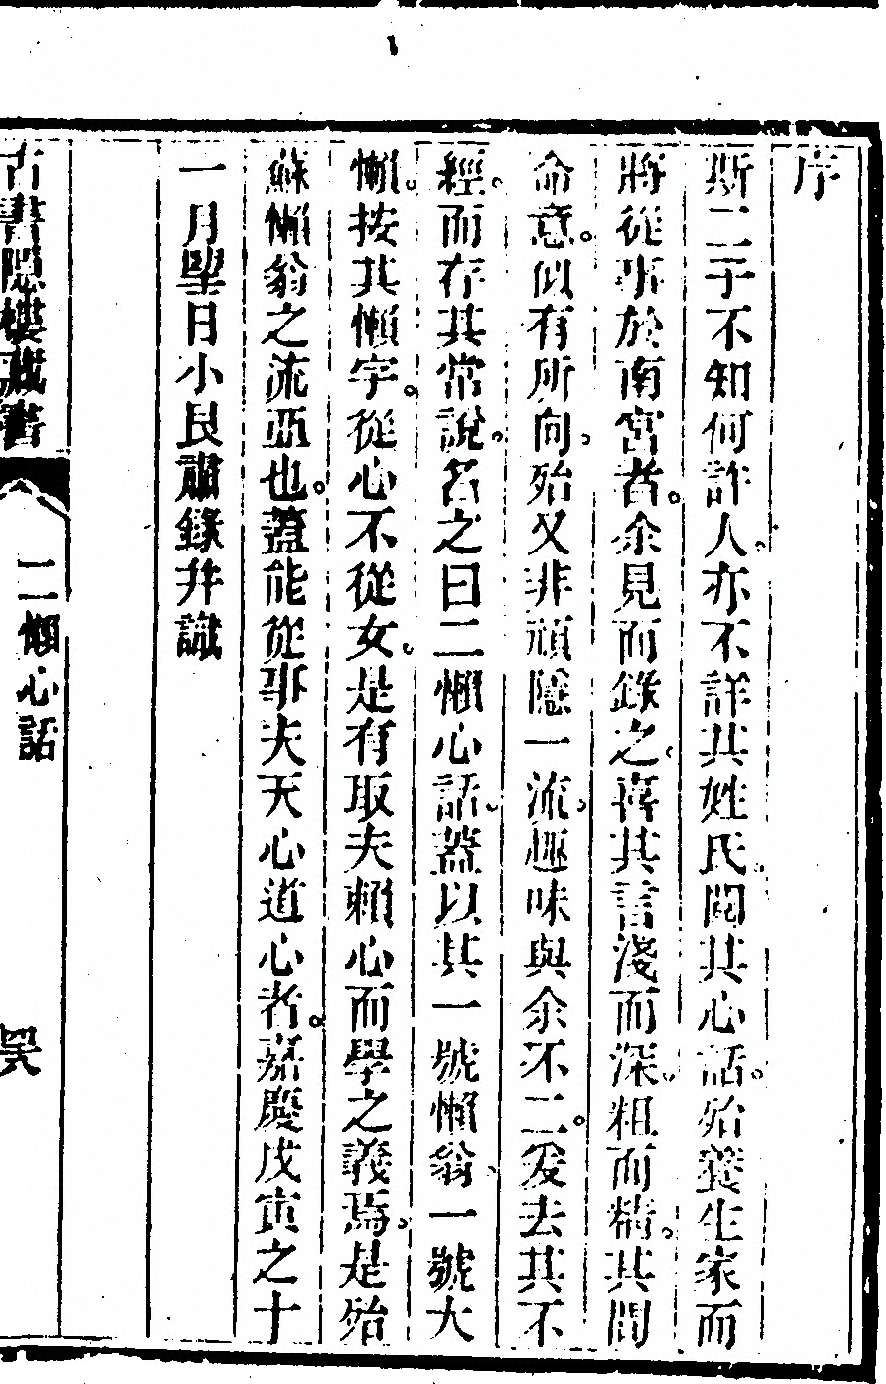 序
斯二子不知何許人。亦不詳其姓氏。閱其心話。殆養生家而
將從事於南宮者。余見而錄之。喜其言淺而深。粗而精。其間
命意。似有所向。殆又非頑隱一流。趣味與余不二。爰去其不
經。而存其常說。名之曰二懶心話。蓋以其一號懶翁。一號大
懶。按其懶字。從心不從女。是有取夫賴心而學之義焉。是殆
蘇懶翁之流亞也。蓋能從事夫天心道心者。嘉慶戊寅之十
一月望日小艮肅錄并識
古書隱樓藏書
二懶心話